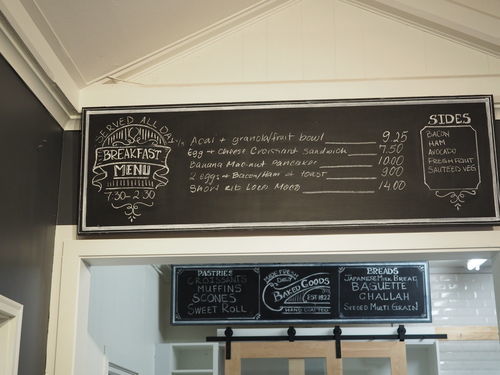 SERVED ALL DAY
BREAKFAST
MENU
7:30-2:30
Acai + granola/fruit bowl 9.25
Egg + Cheese Croissant Sandwich 7.50
Banana Mac-nut Pancakes 10.00
2 eggs + Bacon/Ham + toast 9.00
Short Rib Loco Moco 14.00
SIDES
BACON
HAM
AVOCADO
FRESH FRUIT
SAUTEED VEG
PASTRIES
CROISSANTS
MUFFINS
SCONES
SWEET ROLL
MADE FRESH
DAILY
BAKED GOODS
EST 1922
HAND CRAFTED
BREADS
JAPANESE MILK BREAD
BAGUETTE
CHALLAH
SEEDED MULTI GRAIN